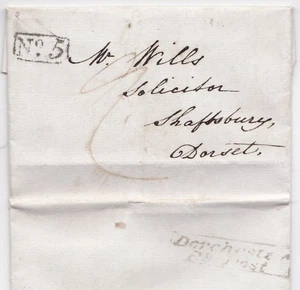 No. 5
Mr. Wills
Solicitor
Shaftsbury,
Dorset.
Dorchester
Py Post